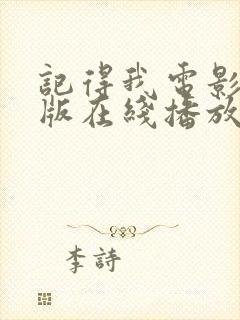 記得我電影
版在綫播放
李詩